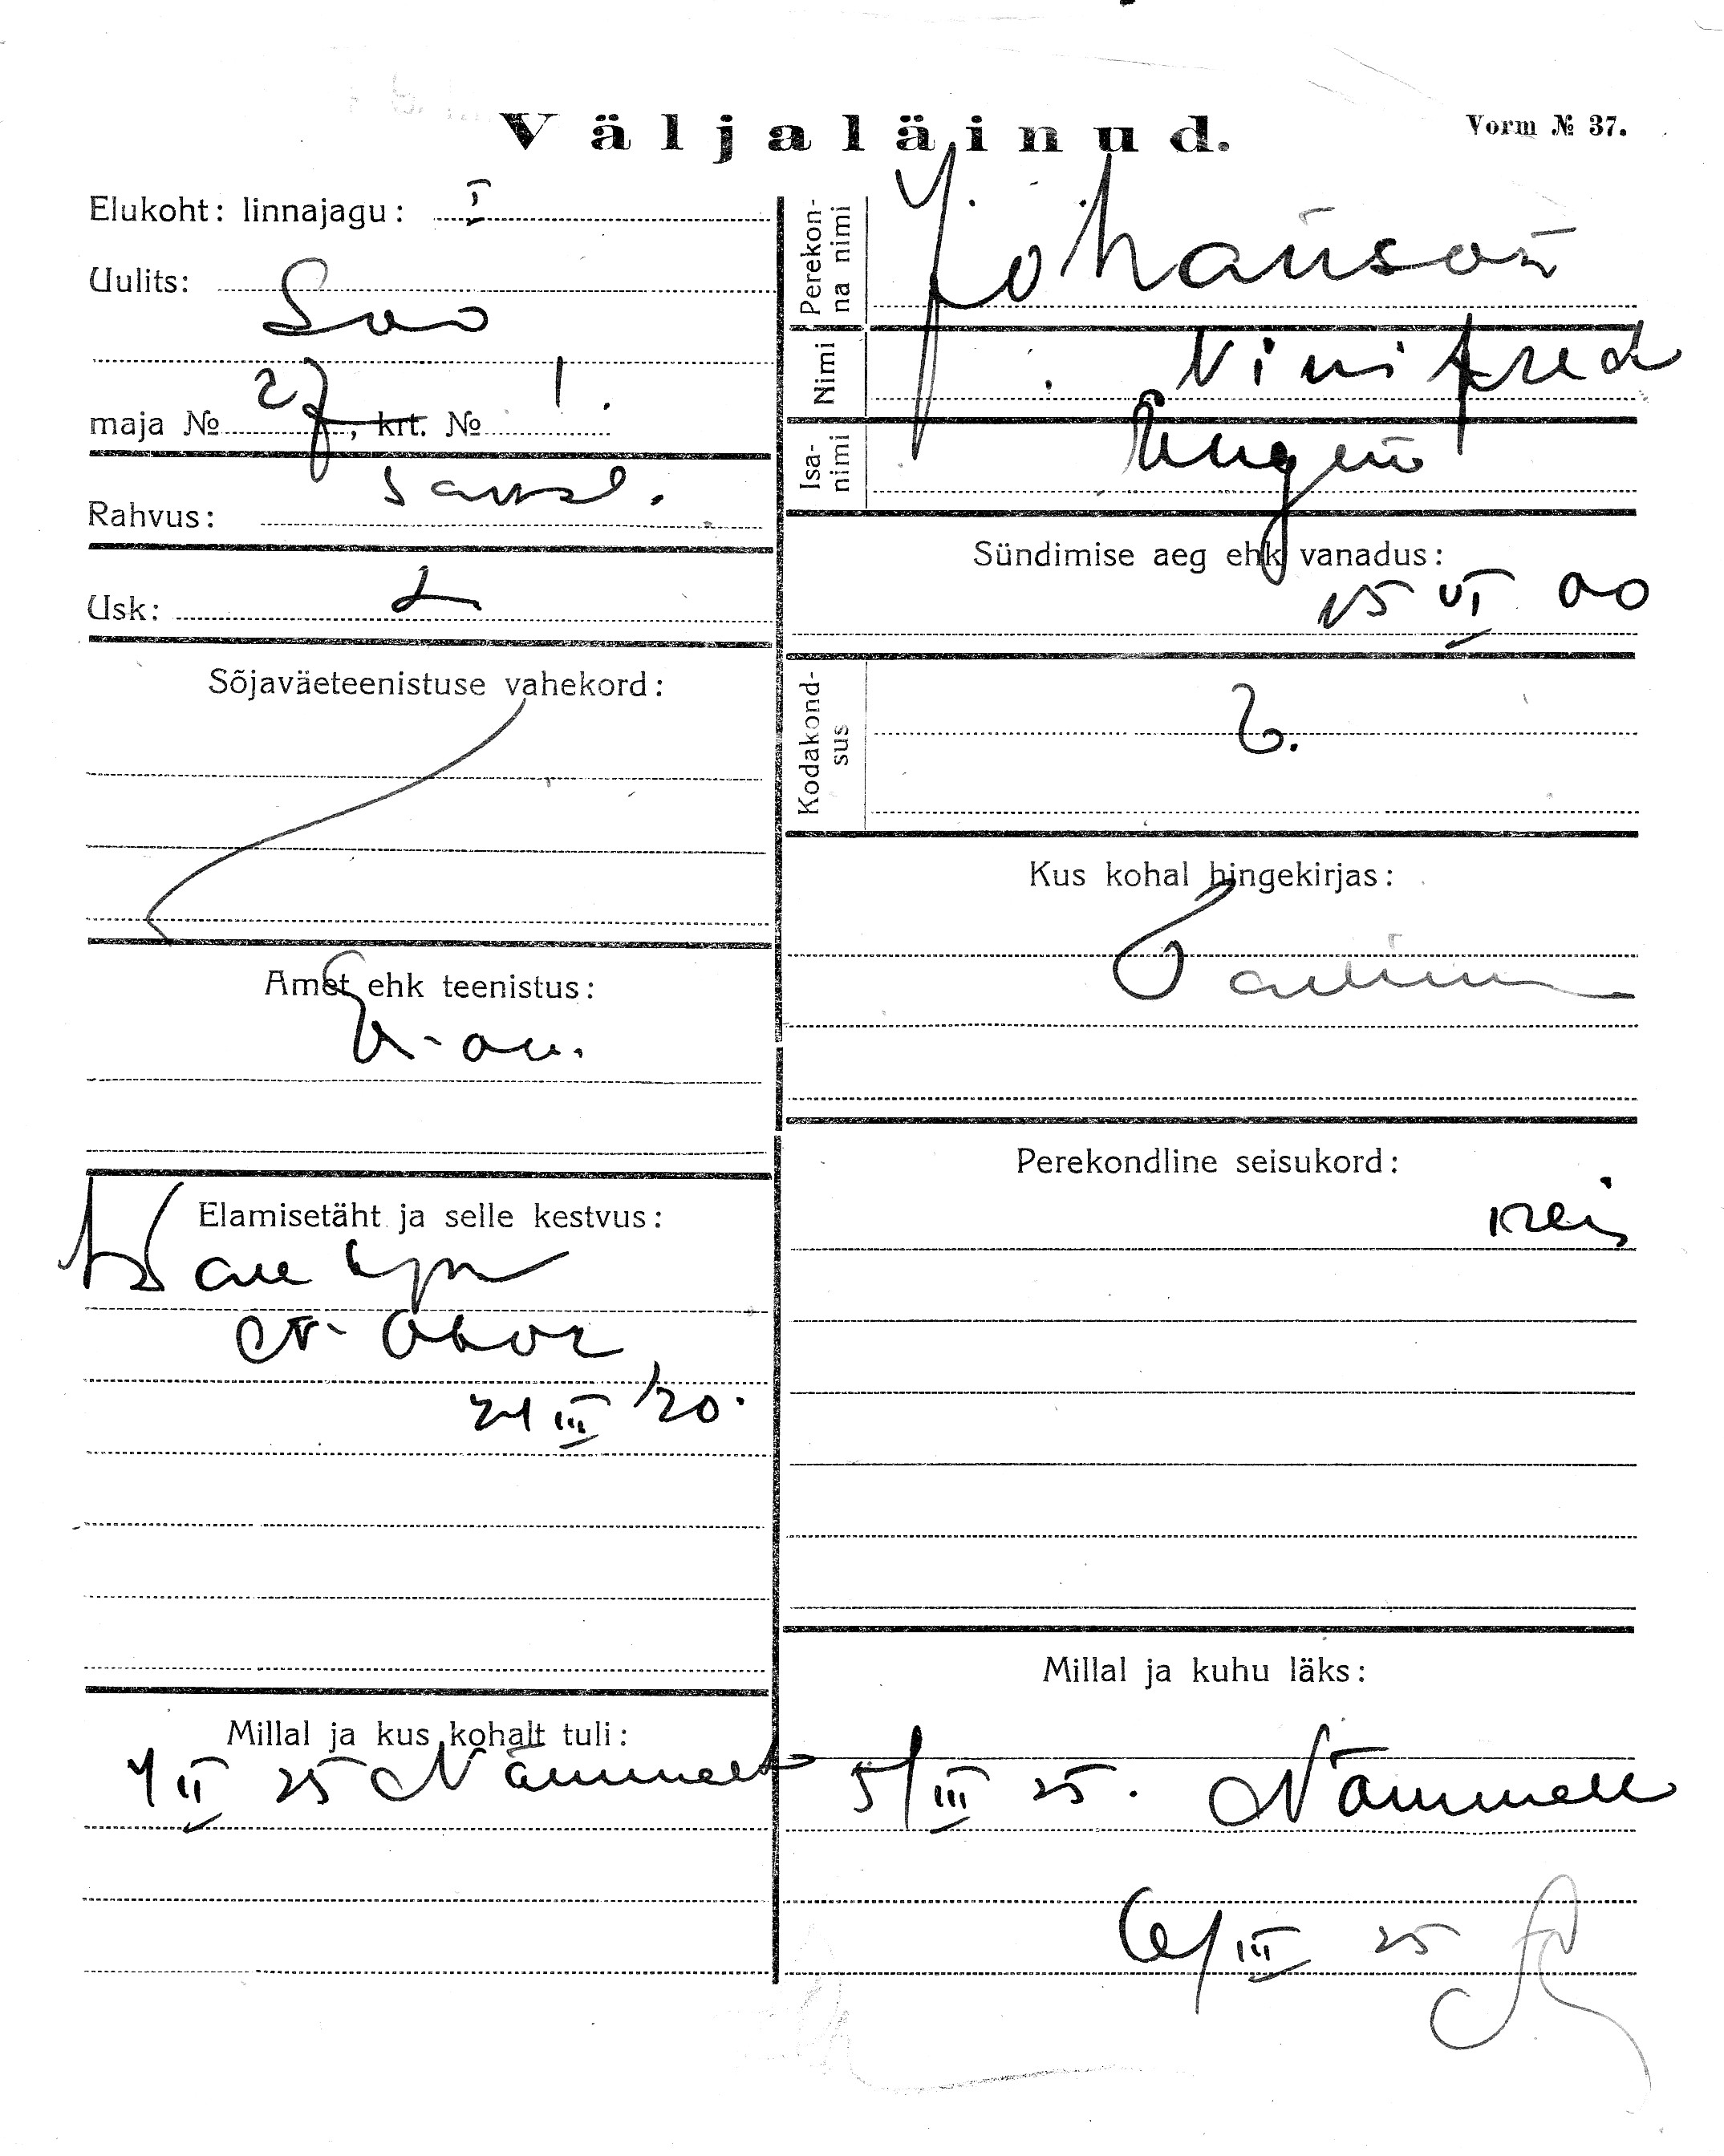 Väljaläinud.
Vorm № 37.
Elukoht: linnajagu: I
Uulits:
Soo
maja № 27, krt. № 1.
Rahvus:
Usk: L
Sõjaväeteenistuse vahekord:
Amet ehk teenistus:
Elamisetäht ja selle kestvus:
24 III 20.
Millal ja kus kohalt tuli:
4 II 25 Nõmmelt
Perekonna nimi
Johanson
Nimi
Vinifred
Isanimi
Eugen
Sündimise aeg ehk vanadus:
15 VI 00
Kodakondsus
E.
Kus kohal hingekirjas:
Tallinn
Perekondline seisukord:
Millal ja kuhu läks:
5/III 25. Nõmmele
6/III 25